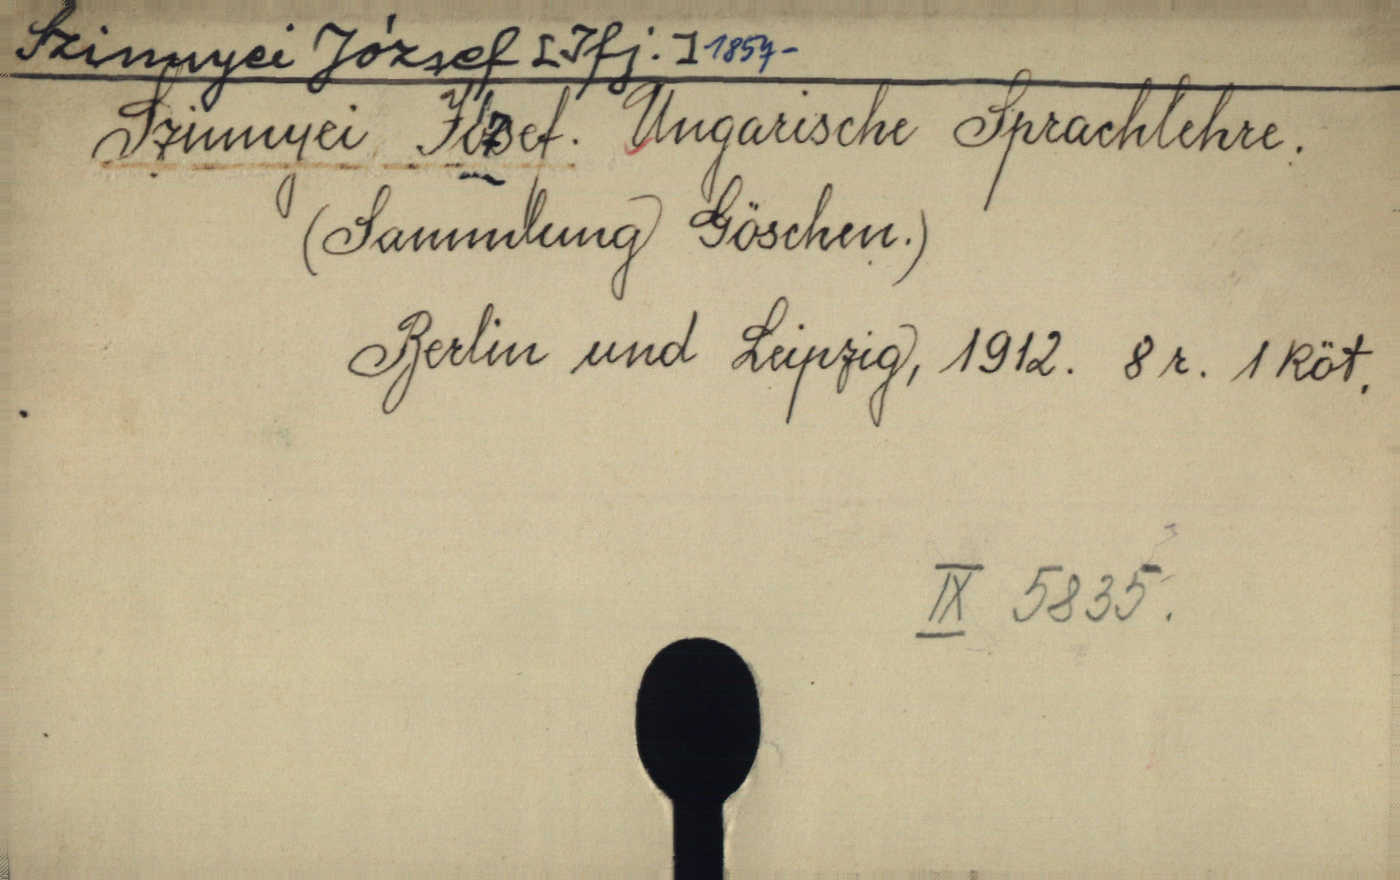 Szinnyei József [Ifj.] 1857-
Szinnyei József. Ungarische Sprachlehre.
(Sammlung Göschen.)
Berlin und Leipzig, 1912. 8 r. 1 köt.
IX 5835.